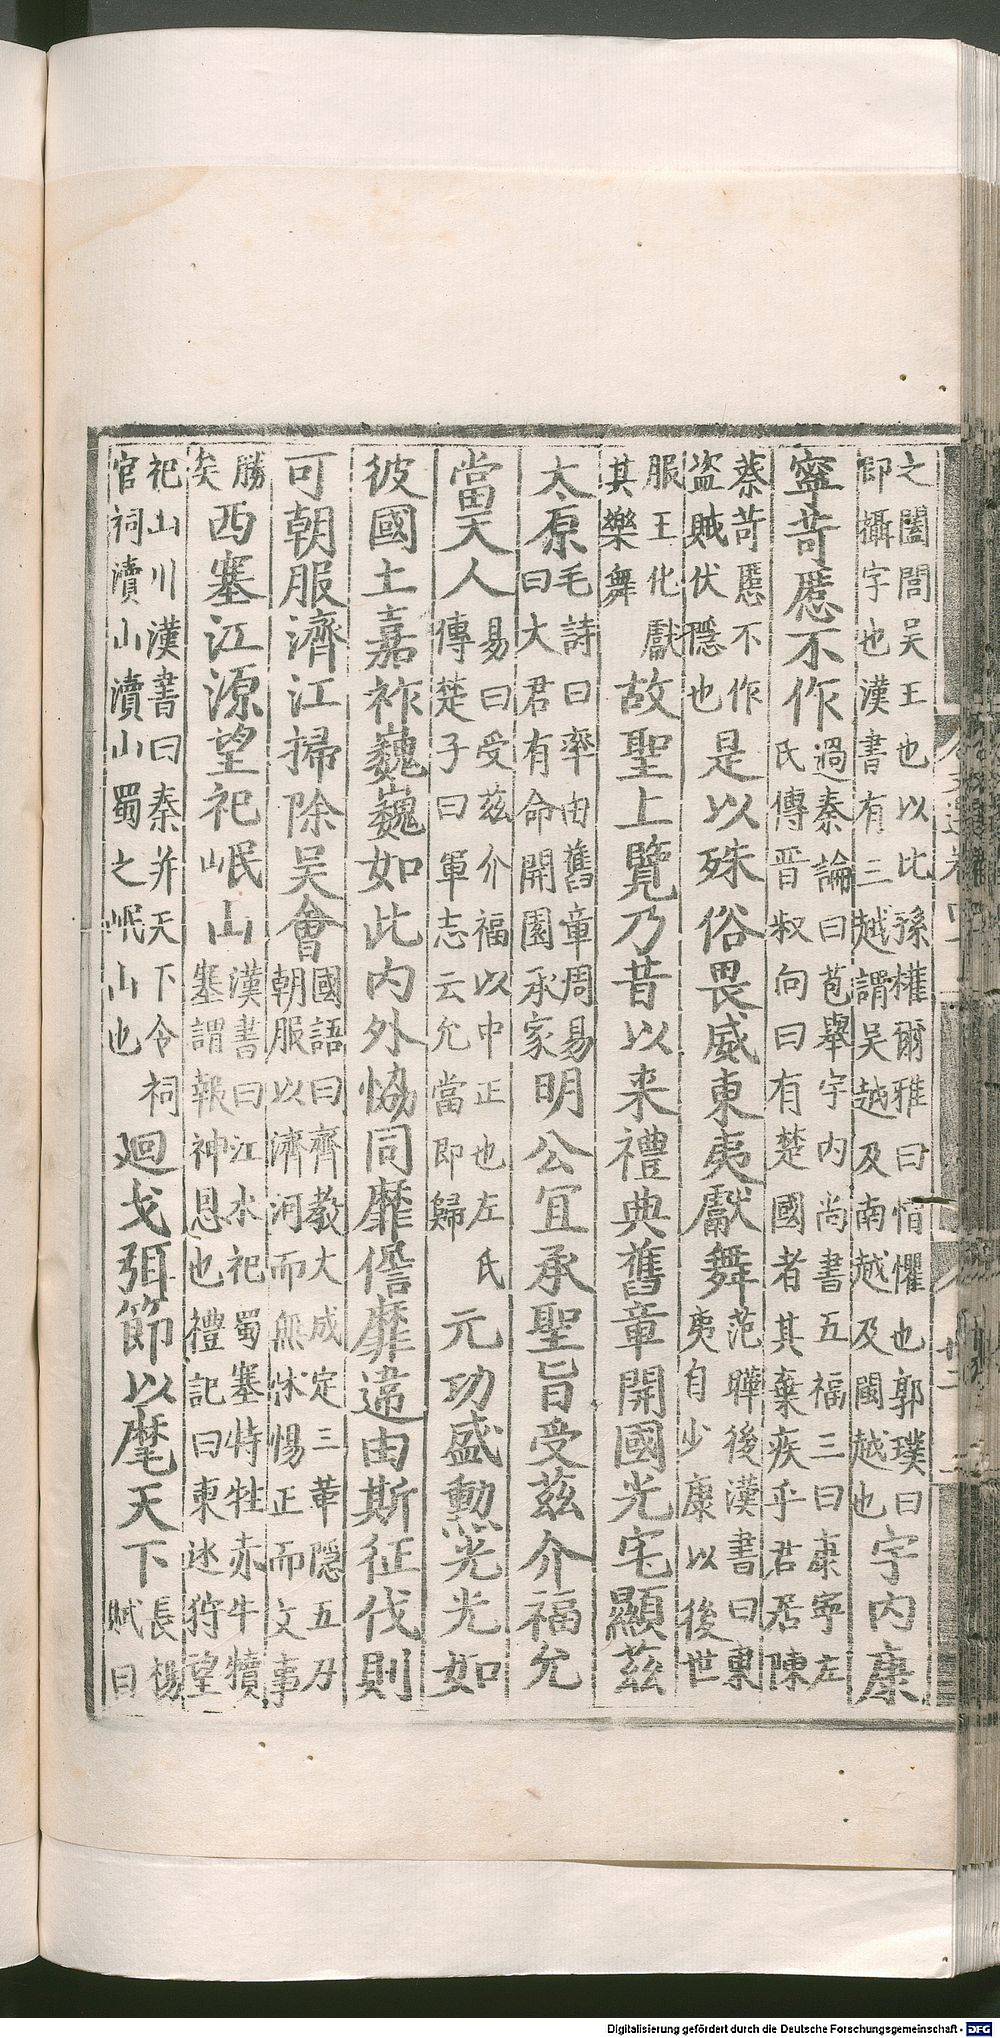 之闔閭吳王也以比孫權爾雅曰慴懼也郭璞曰
即攝字也漢書有三越謂吳越及南越及閩越也宇內康
寧苛慝不作過秦論曰苞舉宇內尚書五福三曰康寧左
氏傳晉叔向曰有楚國者其棄疾乎君居陳
蔡苛慝不作
盗賊伏隱也是以殊俗畏威東夷獻舞范曄後漢書曰東
夷自少康以後世
服王化獻
其樂舞故聖上覽乃昔以来禮典舊章開國光宅顯茲
太原毛詩曰率由舊章周易
曰大君有命開國承家明公宜承聖旨受茲介福允
當天人易曰受茲介福以中正也左氏
傳楚子曰軍志云允當即歸元功盛勳光光如
彼國土嘉祚巍巍如此内外恊同靡僭靡違由斯征伐則
可朝服濟江掃除吳會國語曰齊教大成定三革隱五刃
朝服以濟河而無怵惕正而文事
勝
矣西塞江源望祀岷山漢書曰江水祀蜀塞特牲赤牛犢
塞謂報神恩也禮記曰東廵狩望
祀山川漢書曰秦并天下令祠
官祠瀆山瀆山蜀之岷山也廻戈弭節以麾天下長楊
賦曰
Digitalisierung gefördert durch die Deutsche Forschungsgemeinschaft - DFG